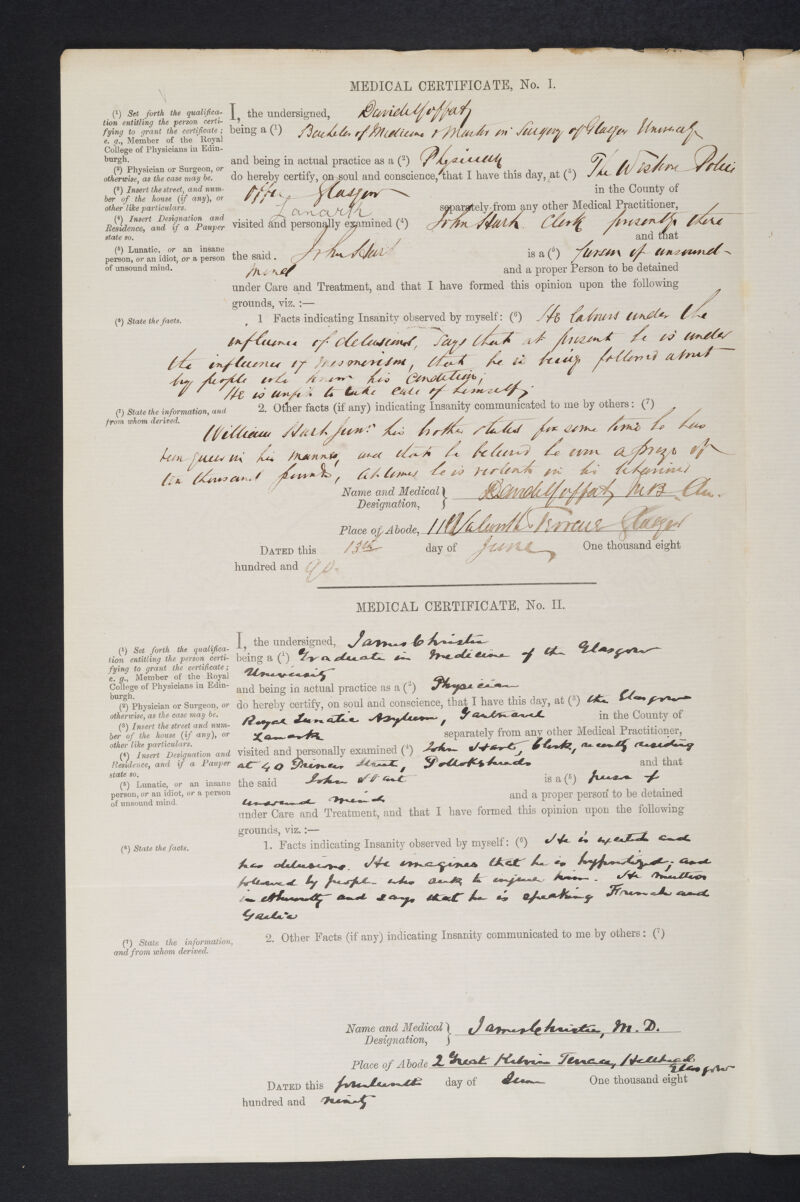 MEDICAL CERTIFICATE, No. I.
(1) Set forth the qualifica-
tion entitling the person certi-
fying to grant the certificate;
e. g., Member of the Royal
College of Physicians in Edin-
burgh.
(2) Physician or Surgeon, or
otherwise, as the case may be.
(3) Insert the street, and num-
ber of the house (if any), or
other like particulars.
(4) Insert Designation and
Residence, and if a Pauper
state so.
(5) Lunatic, or an insane
person, or an idiot, or a person
of unsound mind.
I, the undersigned, David Moffat
being a (1) Bachelor of Medicine & Master in Surgery of Glasgow University
and being in actual practice as a (2) Physician
do hereby certify, on soul and conscience, that I have this day, at (3) The Western Police
Office Glasgow in the County of
Lanark separately from any other Medical Practitioner,
visited and personally examined (4) John Hart Clerk presently there
and that
the said. John Hart is a (5) person of unsound-
mind and a proper Person to be detained
under Care and Treatment, and that I have formed this opinion upon the following
grounds, viz. :—
(6) State the facts.
1 Facts indicating Insanity observed by myself: (6) He labours under the
influence of delusions, says that at present he is under
the influence of mesmerism, that he is being followed about
by people who know his condition,
He is unfit to take care of himself,
(7) State the information, and
from whom derived.
2. Other facts (if any) indicating Insanity communicated to me by others: (7)
William Hart Junr his brother states for some time he has
been queer in his manner, and that he believed he won a prize of
ten thousand pounds, at times he is violent in his behaviour
Name and Medical
Designation, David Moffat, M.B. C.M.
Place of Abode, 11 Walworth Terrace Glasgow
DATED this 13th day of June, One thousand eight
hundred and 90.
MEDICAL CERTIFICATE, No. II.
(1) Set forth the qualifica-
tion entitling the person certi-
fying to grant the certificate;
e. g., Member of the Royal
College of Physicians in Edin-
burgh.
(2) Physician or Surgeon, or
otherwise, as the case may be.
(3) Insert the street and num-
ber of the house (if any), or
other like particulars.
(4) Insert Designation and
Residence, and if a Pauper
state so.
(5) Lunatic, or an insane
person, or an idiot, or a person
of unsound mind.
I, the undersigned, James Christie
being a (1) Graduate in Medicine of the Glasgow
University
and being in actual practice as a (2) Physician
do hereby certify, on soul and conscience, that I have this day, at (3) the Glasgow
Royal Lunatic Asylum, Gartnavel in the County of
Lanark separately from any other Medical Practitioner,
visited and personally examined (4) John Hart, Clerk, recently residing
at 40 Princes Street, Pollokshields and that
the said John Hart is a (5) person of
unsound mind and a proper person to be detained
under Care and Treatment, and that I have formed this opinion upon the following
grounds, viz. :—
(6) State the facts.
1. Facts indicating Insanity observed by myself: (6) He is excited and
has delusions. He imagines that he is hypnotized, and
followed by people who seek to injure him. He mutters
incoherently and says that he is speaking French and
Gaelic
(7) State the information,
and from whom derived.
2. Other Facts (if any) indicating Insanity communicated to me by others: (7)
Name and Medical
Designation, James Christie, M. D.
Place of Abode 2 Great Kelvin Terrace, Hillhead
Glasgow
DATED this fourteenth day of June One thousand eight
hundred and ninety